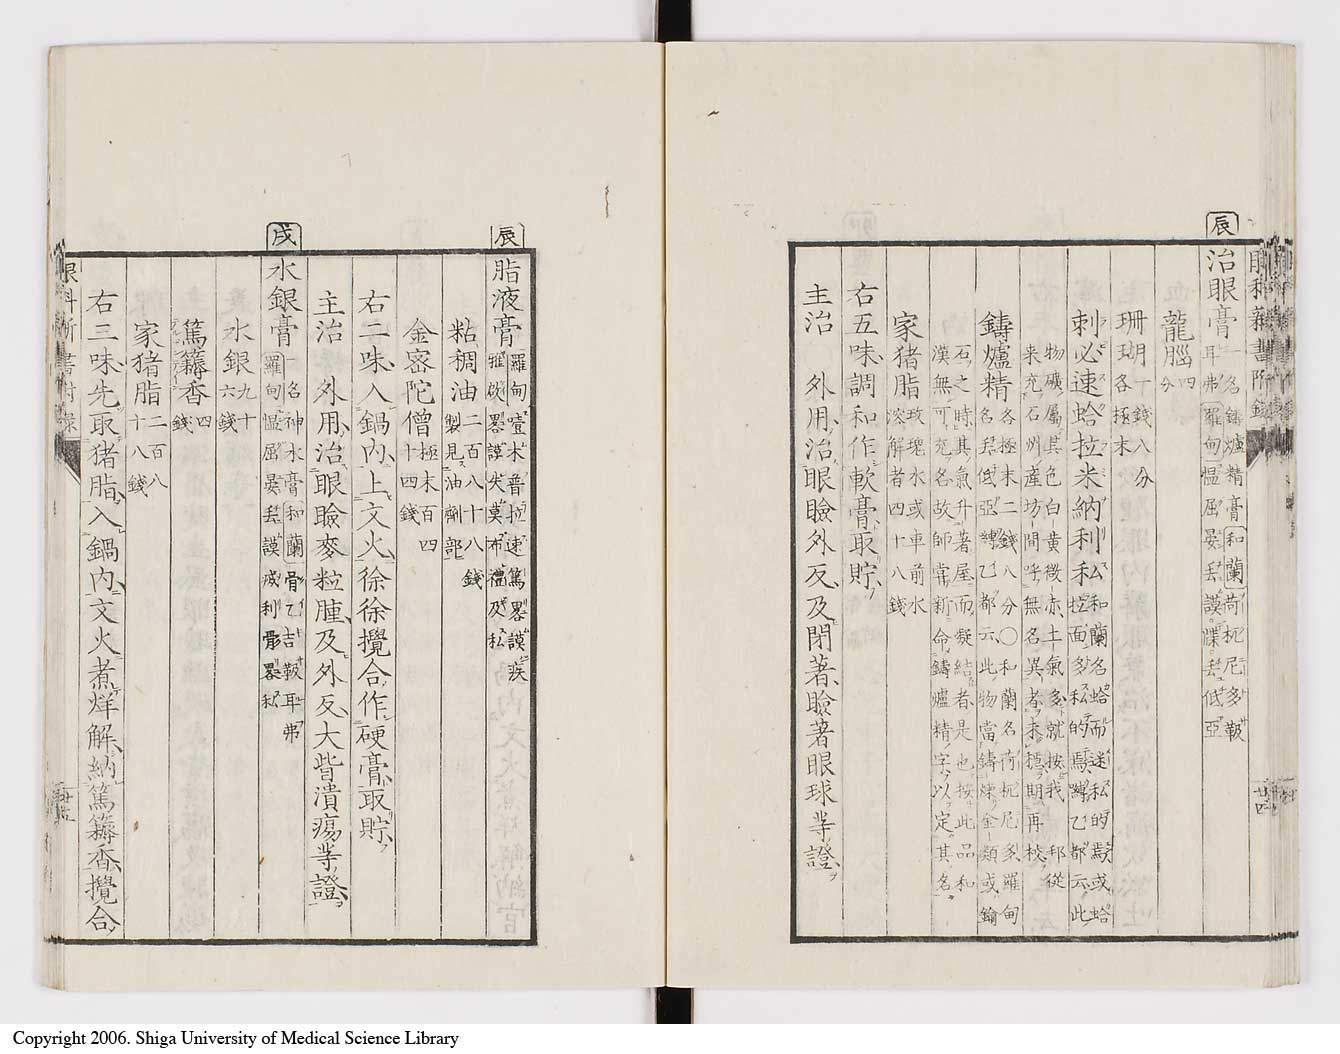 辰
治眼膏 一名鑄爐精膏 和蘭苛杌尼多鞁
耳弗 羅甸慍屈晏丟謨 丟低亞
龍腦 四分
珊瑚 一錢八分
各極末
刺必速蛤拉米納利私 和蘭名蛤而迷私的焉或蛤
拉面多私的焉縛乙都云此
物礦屬其色白黄微赤土氣多就按我邦從
来充石州產坊間呼無名異者未穩期再校
鑄爐精 各極末二錢八分〇和蘭名苛杌尼多羅甸
名丟低亞縛乙都云此物當鑄煉金類或鍮
石之時其氣升著屋而凝結者是也按此品和
漢無可充名故師常新命鑄爐精字以定其名
家猪脂 玫瑰水或車前水
溶解者四十八錢
右五味調和作軟膏取貯
主治 外用治眼瞼外反及閉著瞼著眼球等證
眼科新書附錄
廿四
辰
脂液膏 羅甸 末普拉速篤畧謨疾
畧謨失漠布禮及松
粘稠油 二百八十八錢
製見油劑部
金密陀僧 極末百四
十四錢
右二味入鍋內上文火徐徐攪合作硬膏取貯
主治 外用治眼瞼麥粒腫及外反大眥潰瘍等證
戌
水銀膏 一名神水膏 和蘭骨乙吉鞁耳弗
羅甸慍屈晏丟謨 利 畧私
水銀 九十
六錢
篤耨香 四
錢
家猪脂 二百八
十八錢
右三味先取猪脂入鍋內文火煮烊解納篤耨香攪合
眼科新書附錄